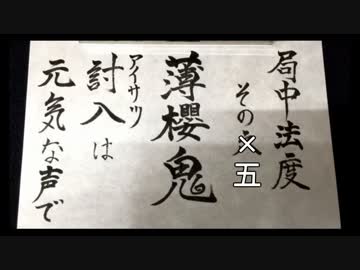 局中法度
その五
薄櫻鬼
アイサツ
討入は
元気な声で